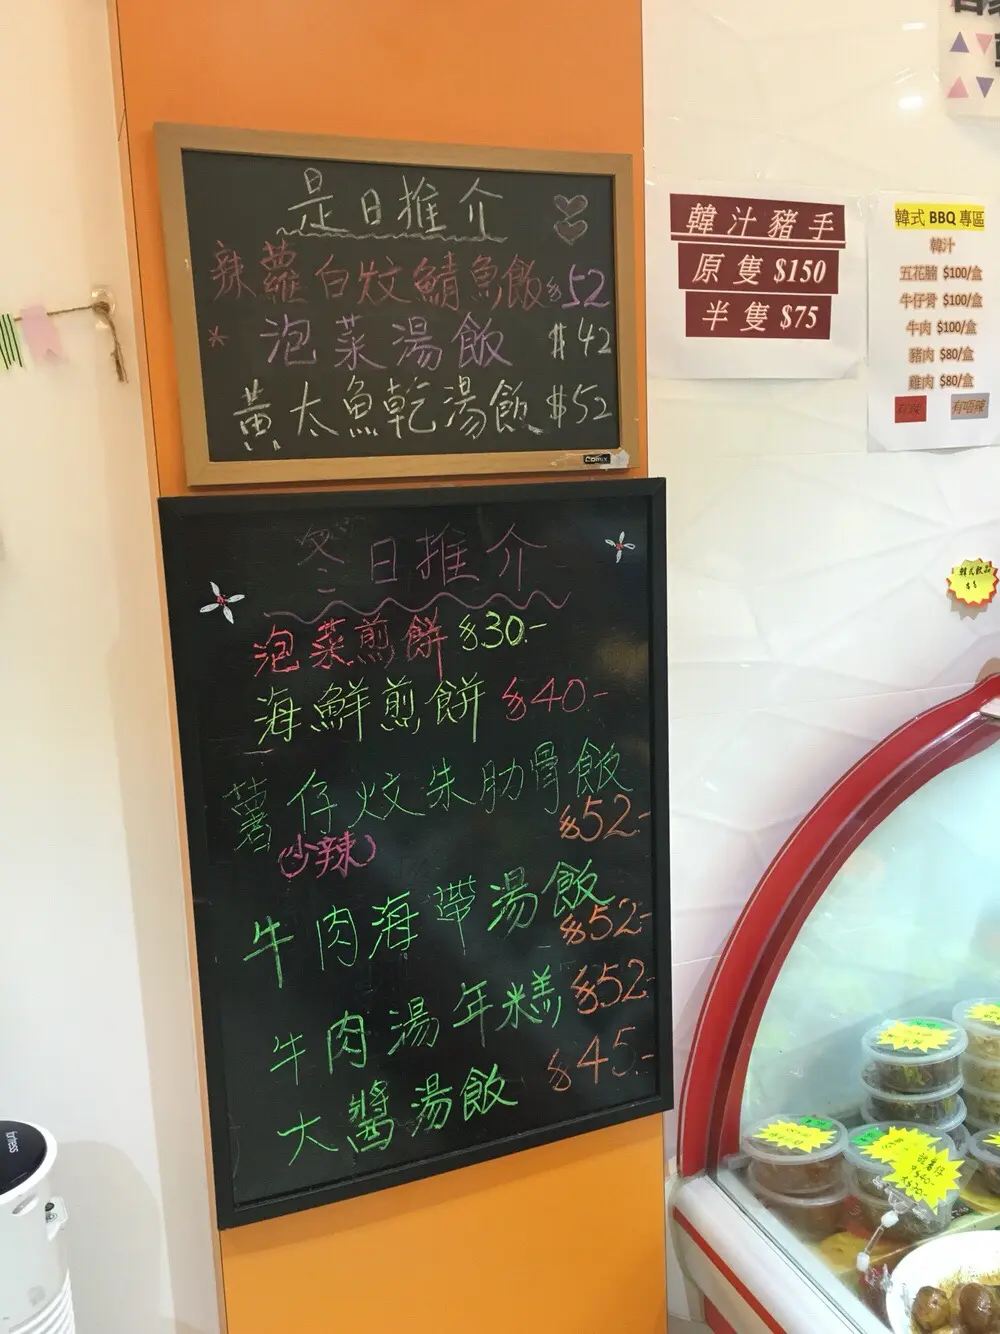 是日推介
辣蘿白炆鯖魚飯 $52
* 泡菜湯飯 $42
黃太魚乾湯飯 $52
Comix
冬日推介
泡菜煎餅 $30.-
海鮮煎餅 $40.-
薯仔炆朱肋骨飯
$52.-
(少辣)
牛肉海帶湯飯
$52.-
牛肉湯年糕 $52.-
大醬湯飯 $45.-
韓汁豬手
原隻 $150
半隻 $75
韓式 BBQ 專區
韓汁
五花腩 $100/盒
牛仔骨 $100/盒
牛肉 $100/盒
豬肉 $80/盒
雞肉 $80/盒
有辣 有唔辣
韓式飲品